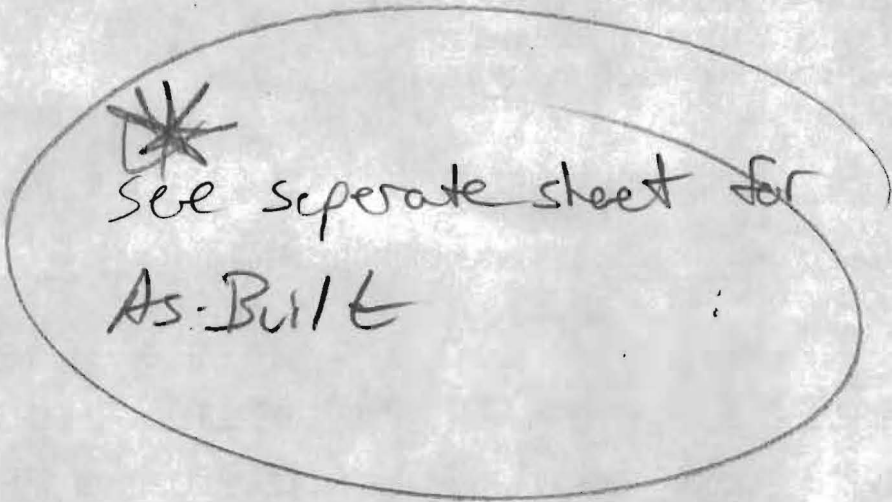 * see seperate sheet for
As-Built